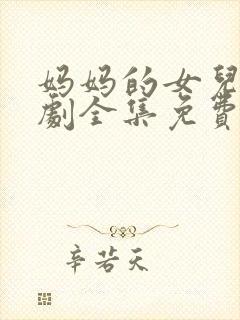 妈妈的女兒
劇全集免費
辛若天